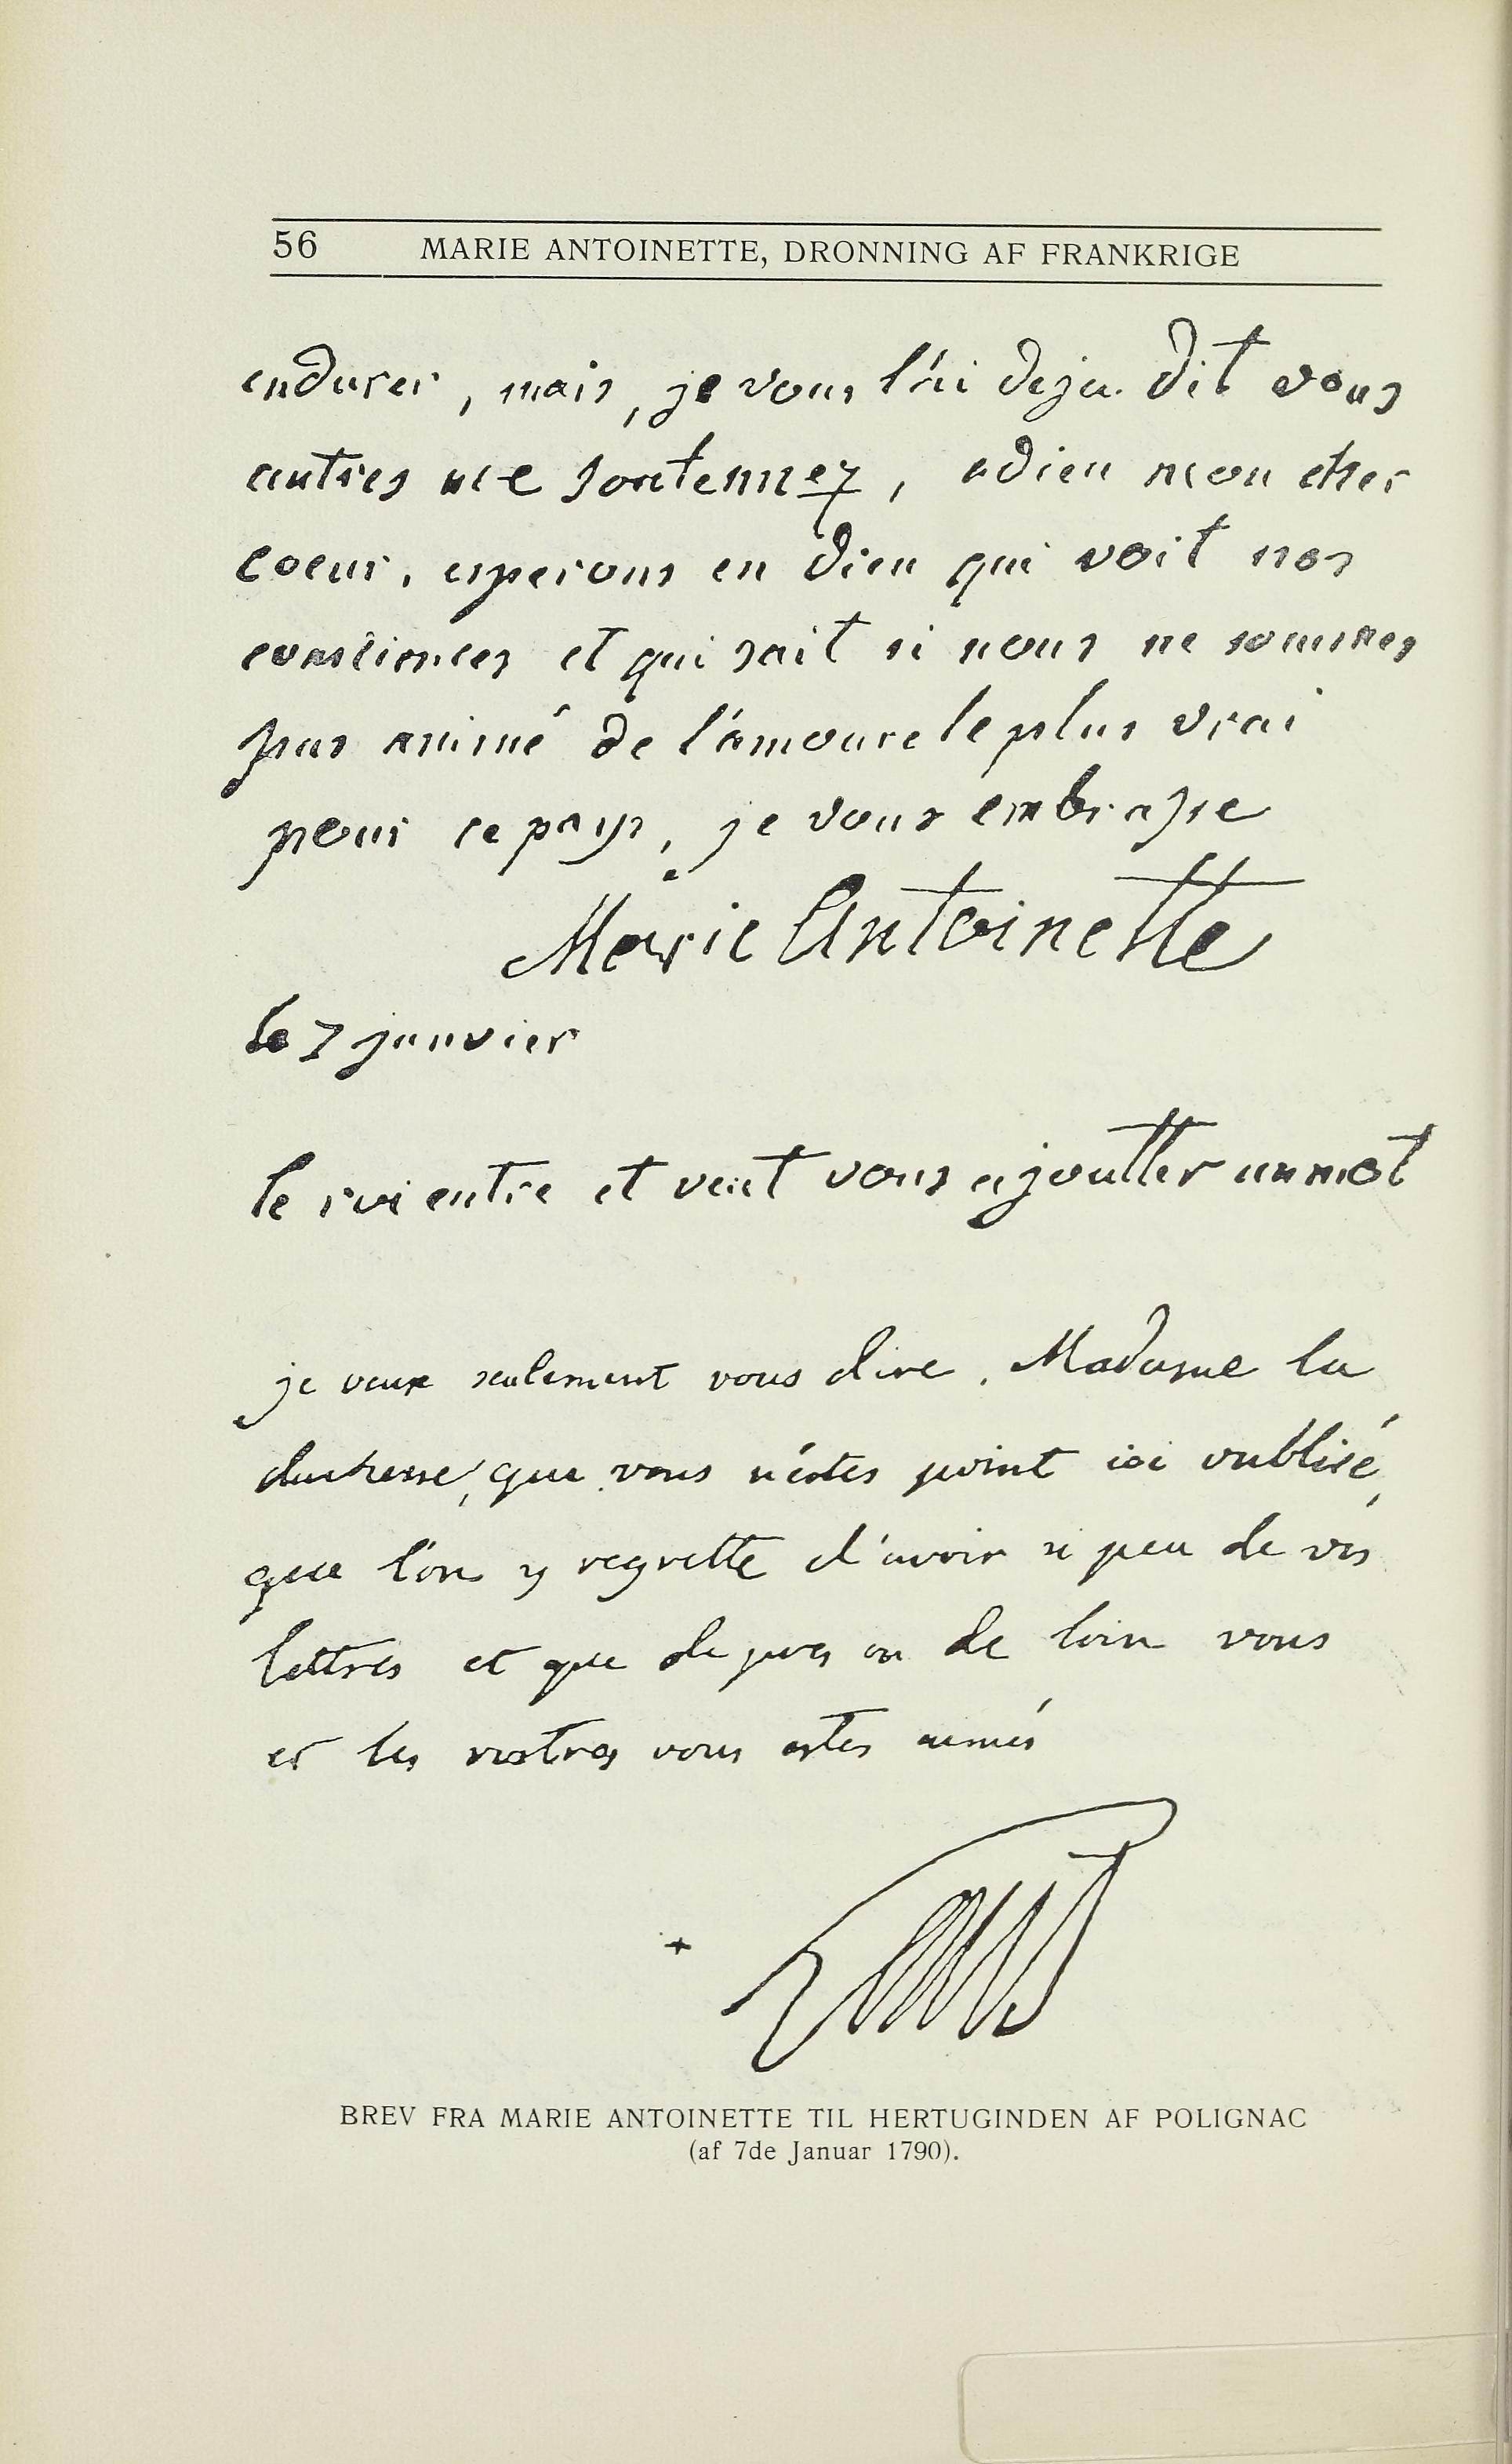 56 MARIE ANTOINETTE, DRONNING AF FRANKRIGE
endurer, mais, je vous l'ai deja dit vous
autres me soutennez, adieu mon cher
coeur, esperons en dieu qui voit nos
consciences et qui sait si nous ne sommes
pas animé de l'amoure le plus vrai
pour ce pays, je vous embrasse
Marie Antoinette
le 7 janvier
le roi entre et veut vous ajoutter un mot
je veux seulement vous dire, Madame la
duchesse, que vous n'éstes point ici oublié,
que l'on y regrette d'avoir si peu de vos
lettres et que de pres ou de loin vous
et les vostres vous estes aimés
+
BREV FRA MARIE ANTOINETTE TIL HERTUGINDEN AF POLIGNAC
(af 7de Januar 1790).